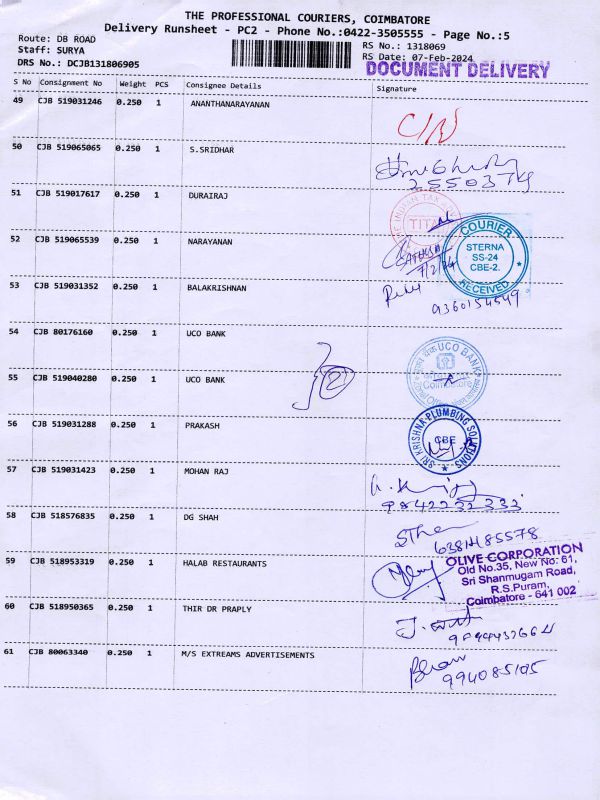 THE PROFESSIONAL COURIERS, COIMBATORE
Delivery Runsheet - PC2 - Phone No.:0422-3505555 - Page No.:5
Route: DB ROAD
RS No.: 1318069
Staff: SURYA
RS Date: 07-Feb-2024
DRS No.: DCJB131806905
DOCUMENT DELIVERY
S No Consignment No Weight PCS Consignee Details Signature
49 CJB 519031246 0.250 1 ANANTHANARAYANAN
50 CJB 519065065 0.250 1 S.SRIDHAR
51 CJB 519017617 0.250 1 DURAIRAJ
TITAN
52 CJB 519065539 0.250 1 NARAYANAN
COURIER
STERNA
SS-24
CBE-2.
RECEIVED
7/2/24
53 CJB 519031352 0.250 1 BALAKRISHNAN
9360154549
54 CJB 80176160 0.250 1 UCO BANK
UCO BANK
Coimbatore
55 CJB 519040280 0.250 1 UCO BANK
2
56 CJB 519031288 0.250 1 PRAKASH
SRI KRISHNA PLUMBING SOLUTIONS
CBE
57 CJB 519031423 0.250 1 MOHAN RAJ
9842232333
58 CJB 518576835 0.250 1 DG SHAH
59 CJB 518953319 0.250 1 HALAB RESTAURANTS
OLIVE CORPORATION
Old No.35, New No: 61,
Sri Shanmugam Road,
R.S.Puram,
Coimbatore - 641 002
60 CJB 518950365 0.250 1 THIR DR PRAPLY
61 CJB 80063340 0.250 1 M/S EXTREAMS ADVERTISEMENTS
994085105